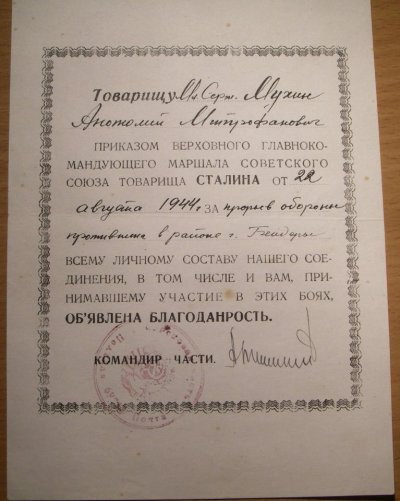 Товарищу Мл. Серж. Мухин
Анатолий Митрофанович
ПРИКАЗОМ ВЕРХОВНОГО ГЛАВНОКО-
МАНДУЮЩЕГО МАРШАЛА СОВЕТСКОГО
СОЮЗА ТОВАРИЩА СТАЛИНА ОТ 22
августа 1944г ЗА прорыв обороны
противника в районе г. Бендеры
ВСЕМУ ЛИЧНОМУ СОСТАВУ НАШЕГО СОЕ-
ДИНЕНИЯ, В ТОМ ЧИСЛЕ И ВАМ, ПРИ-
НИМАВШЕМУ УЧАСТИЕ В ЭТИХ БОЯХ,
ОБЪЯВЛЕНА БЛАГОДАРНОСТЬ.
КОМАНДИР ЧАСТИ.